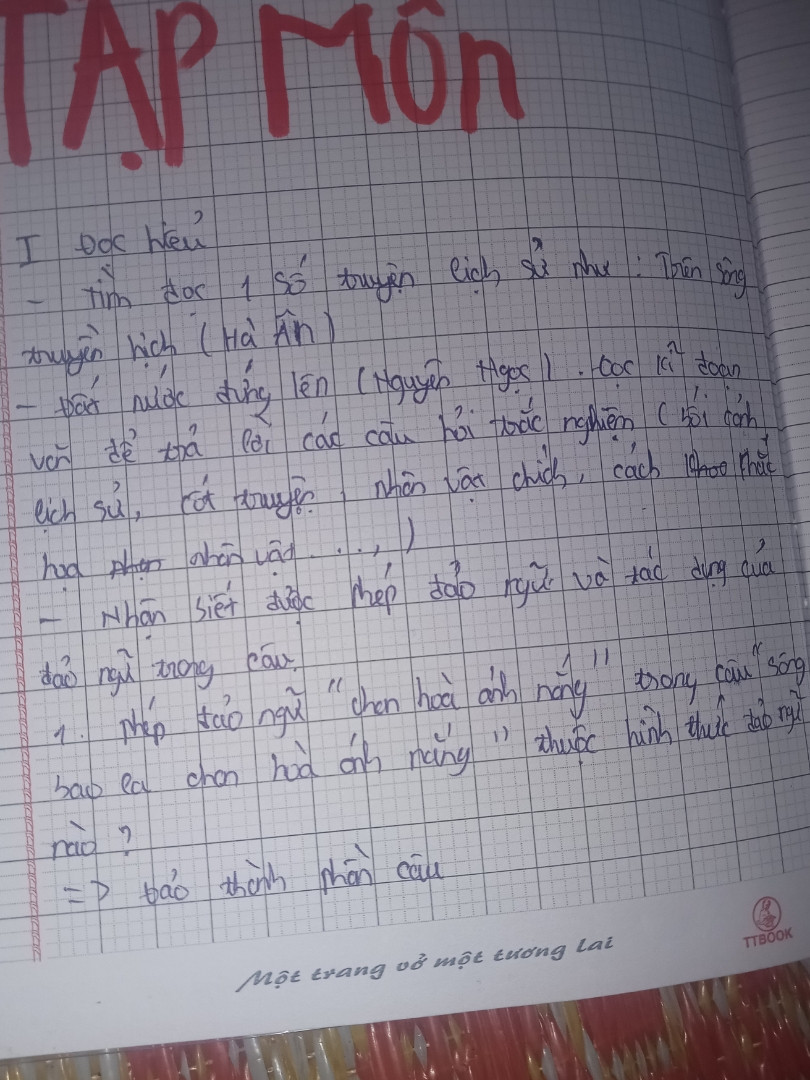 TẬP MÔN
I Đọc hiểu
- Tìm đọc 1 số truyện lịch sử như : Trên sông
truyền hịch (Hà Ân)
- Đất nước đứng lên (Nguyên Ngọc). Đọc kĩ đoạn
văn để trả lời các câu hỏi trắc nghiệm (bối cảnh
lịch sử, cốt truyện, nhân vật chính, cách khắc
hoạ nhân vật ...,)
- Nhận biết được phép đảo ngữ và tác dụng của
đảo ngữ trong câu.
1. Phép đảo ngữ "chan hoà ánh nắng" trong câu "sông
bao la chan hoà ánh nắng" thuộc hình thức đảo ngữ
nào ?
=> Đảo thành phần câu
Một trang vở một tương lai
TTBOOK